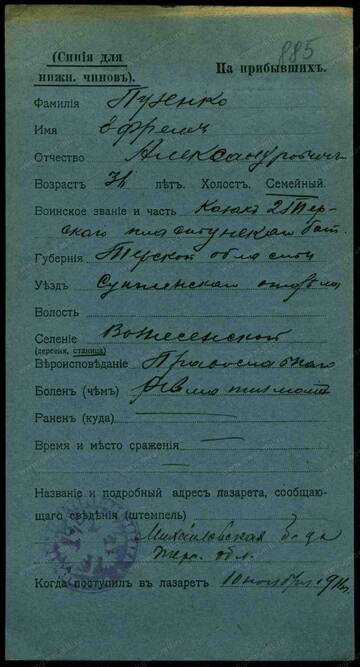 885
(Синія для
нижн. чиновъ).
На прибывшихъ.
Фамилія Пузенко
Имя Ефремъ
Отчество Александровичъ
Возрастъ лѣтъ. Холост. Семейный.
Воинское званіе и часть Казакъ 2 Тер-
скаго пластунскаго бат.
Губернія Терской области
Уѣздъ Сунженскаго отдѣла
Волость
Селеніе Вознесенской
(деревня, станица)
Вѣроисповѣданіе Православнаго
Боленъ (чѣмъ) Ревматизмомъ
Раненъ (куда)
Время и мѣсто сраженія
Названіе и подробный адресъ лазарета, сообщаю-
щаго свѣдѣнія (штемпель)
Михайловская
Терс. обл.
Когда поступилъ въ лазаретъ 10 ноября 191